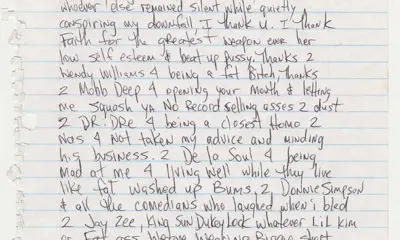 whoever else remained silent while quietly
conspiring my downfall I thank U. I thank
Faith for the greatest weapon ever her
low self esteem & beat up pussy. Thanks 2
Wendy Williams 4 being a fat Bitch, Thanks
2 Mobb Deep 4 opening your mouth & letting
me squash ya No Record selling asses 2 dust
2 DR. DRe 4 being a closest Homo 2
Nas 4 Not taken my advice and minding
his business. 2 De la Soul 4 being
mad at me 4 living well while they live
like fat washed up Bums, 2 Donnie Simpson
& all the comedians who laughed when i bled
2 Jay Zee, King Sun DukeyLock whatever Lil Kim
or Fat ass Biggie short